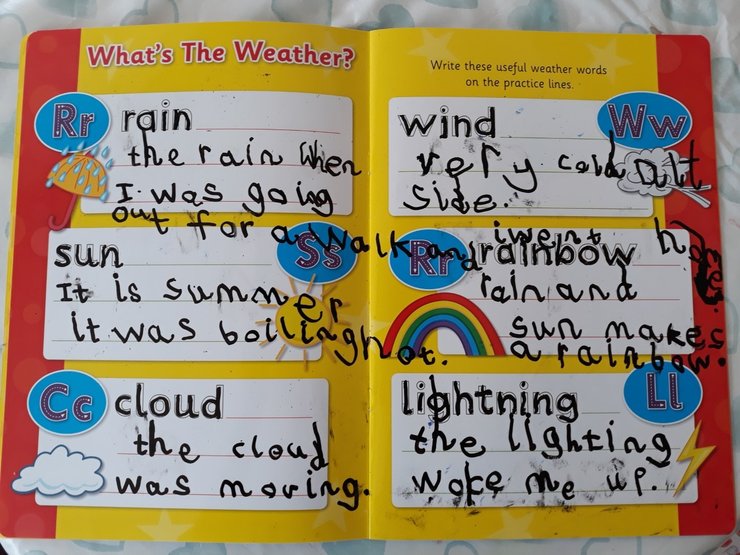 What's The Weather?
Rr rain
the rain When
I was going
out for a walk and i went home.
sun Ss
It is summer
it was boiling hot.
Cc cloud
the cloud
was moving.
Write these useful weather words
on the practice lines.
wind Ww
very cold out
side.
Rr rainbow
rain and
sun makes
a rainbow.
lightning Ll
the lighting
woke me up.